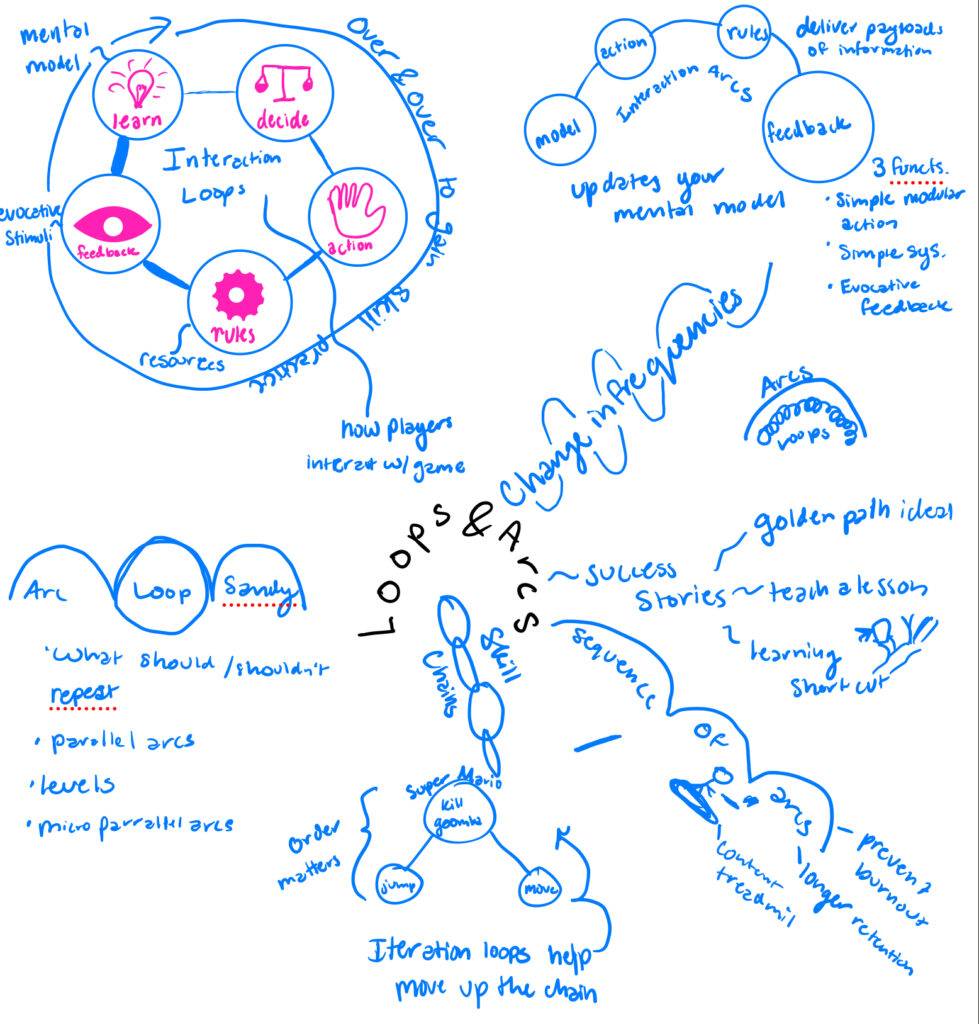 mental
model
learn
decide
Interaction
Loops
evocative
stimuli
feedback
action
rules
resources
Over & Over to gain skill practice
how players
interact w/ game
model
action
rules
feedback
Interaction Arcs
deliver payloads
of information
updates your
mental model
3 functs.
• Simple modular
action
• Simple sys.
• Evocative
feedback
Change in frequencies
Arcs
Loops
Loops & Arcs
Arc
Loop
Sandy
• What should/shouldn't
repeat
• parallel arcs
• levels
• micro parrallel arcs
~ success
Stories ~ teach a lesson
golden path ideal
learning
shortcut
Skill
Chains
Super Mario
kill
goomba
jump
move
Order
matters
Iteration loops help
move up the chain
sequence
of
arcs
content
treadmil
longer retention
prevent
burnout